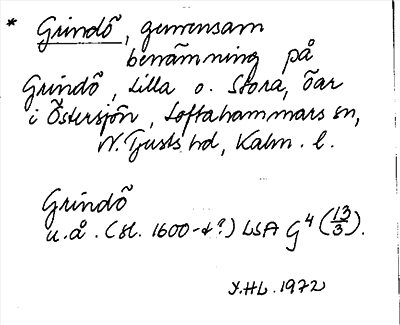 * Grindö, gemensam
benämning på
Grindö, Lilla o. Stora, öar
i Östersjön, Loftahammars sn,
N. Tjusts hd, Kalm. l.
Grindö
u.å. (sl. 1600-t?) LSA G4 (13/3).
Y.HL. 1972